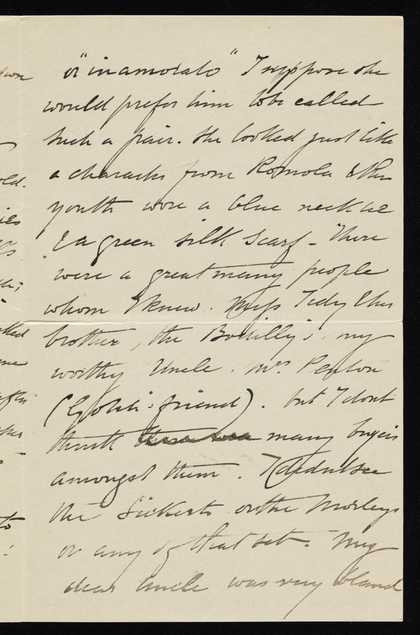 or "inamorato" I suppose she
would prefer him to be called
such a pair. She looked just like
a character from Romola & the
youth wore a blue neck tie
& a green silk scarf – There
were a great many people
whom I knew. Miss Tidy & her
brother, the , my
worthy Uncle. Mrs
( friend). but I dont
think many buyers
amongst them. I didnt see
the Sickerts or the Morleys
or any of that set – My
dear Uncle was very bland